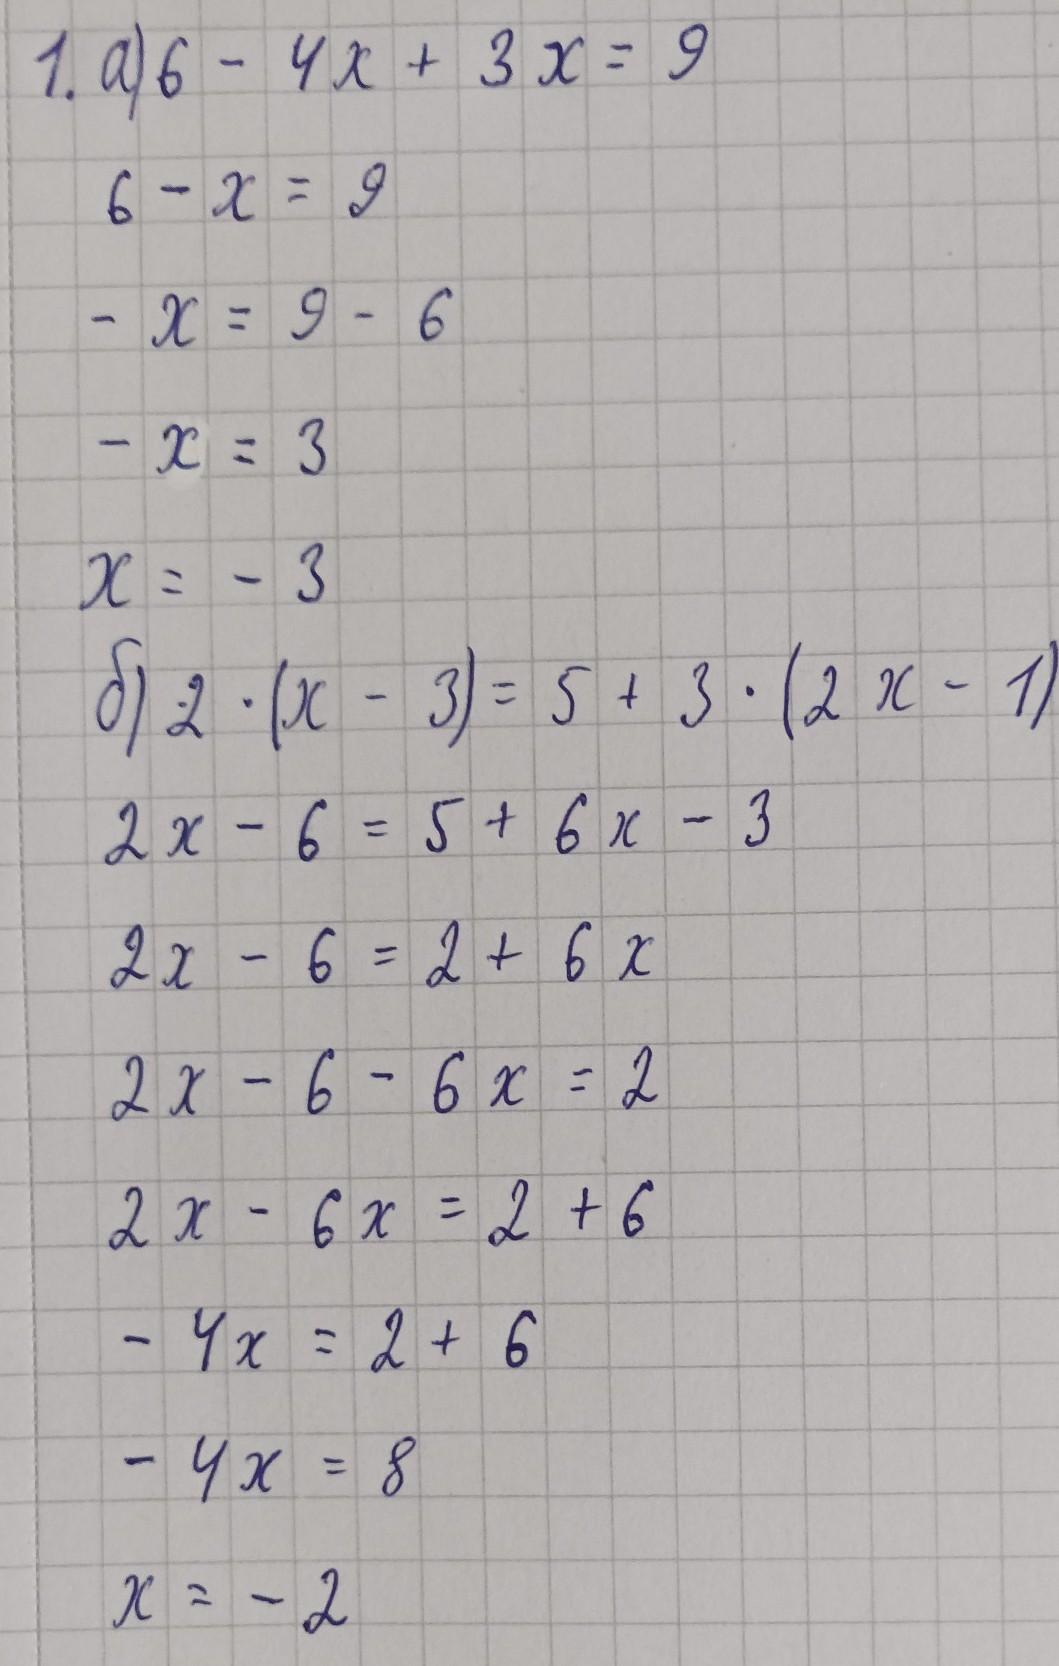 1. а) 6 - 4x + 3x = 9
6 - x = 9
- x = 9 - 6
- x = 3
x = - 3
б) 2 · (x - 3) = 5 + 3 · (2x - 1)
2x - 6 = 5 + 6x - 3
2x - 6 = 2 + 6x
2x - 6 - 6x = 2
2x - 6x = 2 + 6
- 4x = 2 + 6
- 4x = 8
x = - 2